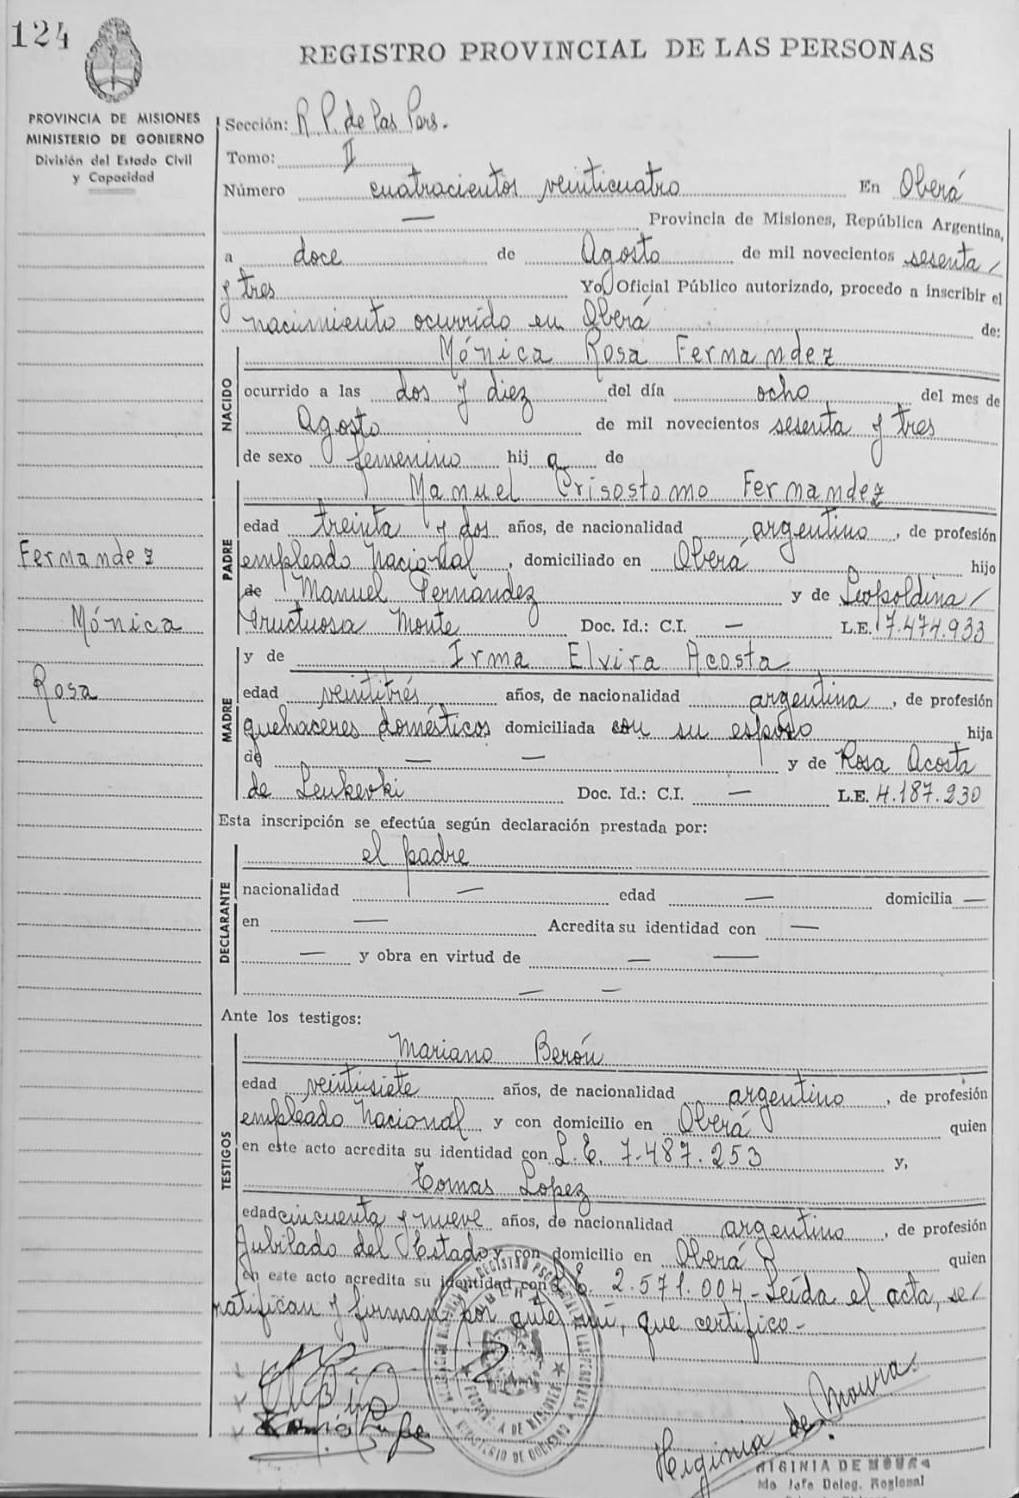 124
REGISTRO PROVINCIAL DE LAS PERSONAS
PROVINCIA DE MISIONES
MINISTERIO DE GOBIERNO
División del Estado Civil
y Capacidad
Sección: R. P. de las Pers.
Tomo: II
Número cuatrocientos veinticuatro En Oberá
— Provincia de Misiones, República Argentina,
a doce de Agosto de mil novecientos sesenta /
y tres Yo, Oficial Público autorizado, procedo a inscribir el
nacimiento ocurrido en Oberá de:
NACIDO
Mónica Rosa Fernandez
ocurrido a las dos y diez del día ocho del mes de
Agosto de mil novecientos sesenta y tres
de sexo femenino hij a de
PADRE
Manuel Crisostomo Fernandez
edad treinta y dos años, de nacionalidad argentino, de profesión
empleado Nacional, domiciliado en Oberá hijo
de Manuel Fernández y de Leopoldina /
Fructuosa Monte Doc. Id.: C.I. — L.E. 7.474.933
Fernandez
Mónica
Rosa
MADRE
y de Irma Elvira Acosta
edad veintitrés años, de nacionalidad argentina, de profesión
quehaceres domésticos domiciliada con su esposo hija
de — — y de Rosa Acosta
de Doc. Id.: C.I. — L.E. 4.187.230
Esta inscripción se efectúa según declaración prestada por:
DECLARANTE
el padre
nacionalidad — edad — domicilia —
en — Acredita su identidad con —
— y obra en virtud de — —
— —
Ante los testigos:
TESTIGOS
Mariano Berón
edad veintisiete años, de nacionalidad argentino, de profesión
empleado Nacional y con domicilio en Oberá quien
en este acto acredita su identidad con L.E. 7.487.253 y,
Tomas Lopez
edad cincuenta y nueve años, de nacionalidad argentino, de profesión
Jubilado del Estado y con domicilio en Oberá quien
en este acto acredita su identidad con L.E. 2.571.004 - Leída el acta, se /
ratifican y firman por ante mí, que certifico -
Higinia de Moura.
HIGINIA DE MOURA
Jefe Deleg. Regional